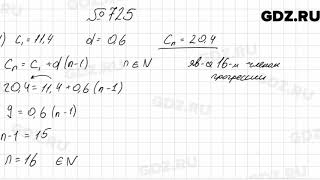 № 725
GDZ.RU
1) c₁ = 11,4 d = 0,6 cₙ = 20,4
cₙ = c₁ + d(n-1) n ∈ N яв-ся 16-м членом
прогрессии
20,4 = 11,4 + 0,6(n-1)
9 = 0,6(n-1)
n-1 = 15
n = 16 ∈ N
GDZ.RU